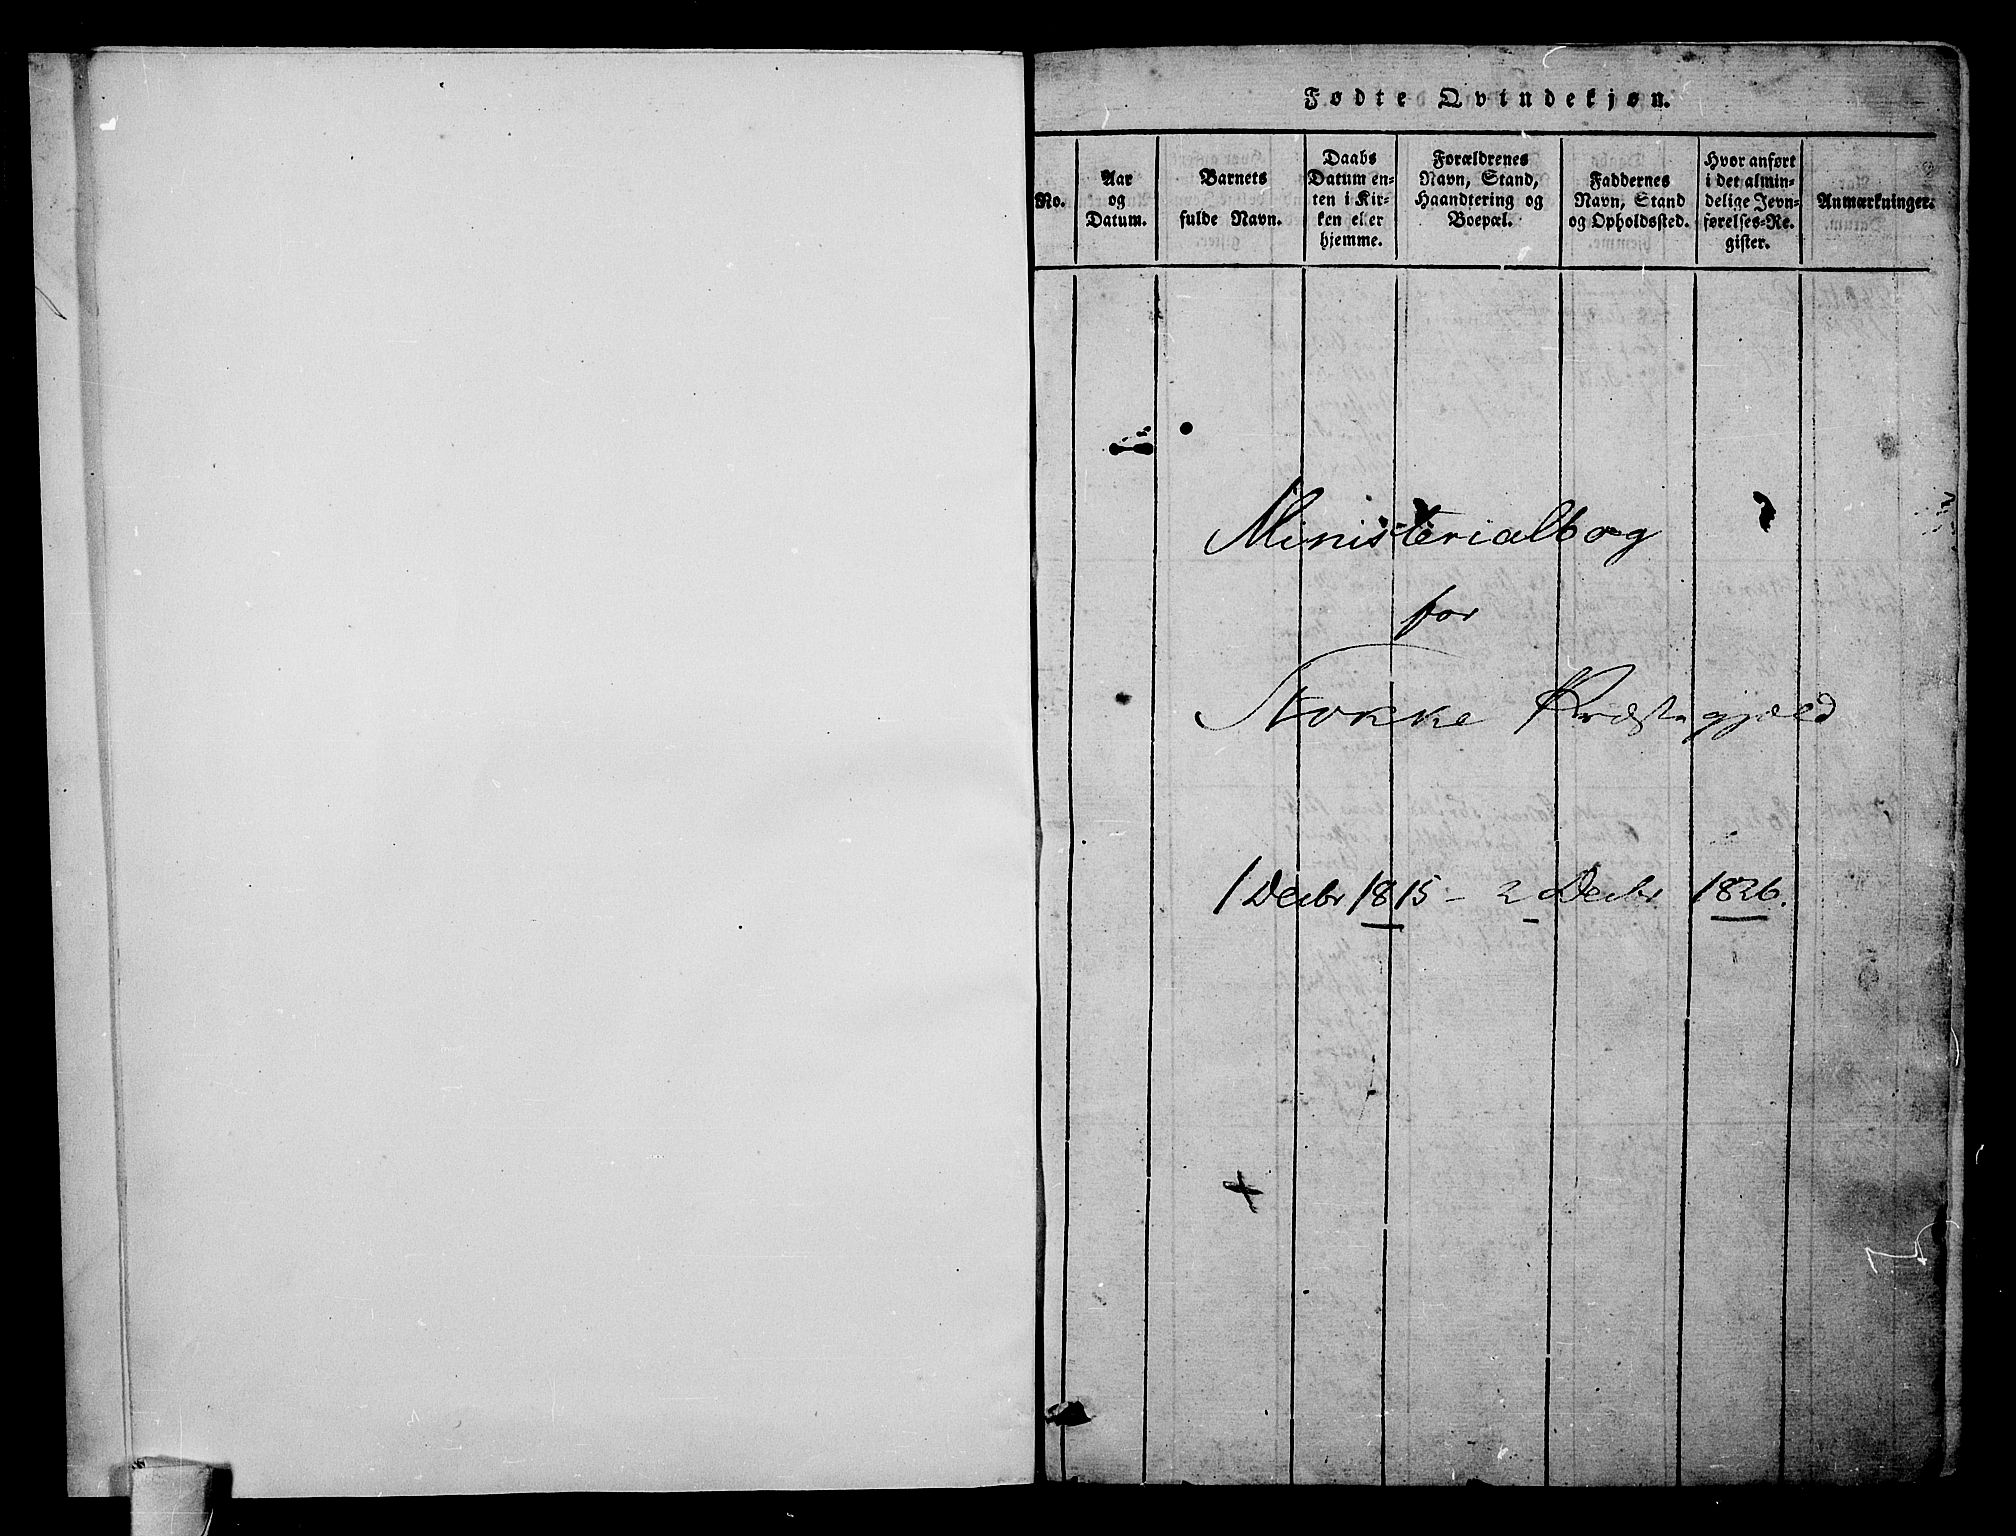 Fødte Qvindekjøn.
No.
Aar
og
Datum.
Barnets
fulde Navn.
Daabs
Datum en-
ten i Kir-
ken eller
hjemme.
Forældrenes
Navn, Stand,
Haandtering og
Boepæl.
Faddernes
Navn, Stand
og Opholdssted.
Hvor anført
i det almin-
delige Jevn-
førelses-Re-
gister.
Anmærkninger.
Ministerialbog
for
Stokke Præstegjæld
1 Decbr 1815 – 2 Decbr 1826.